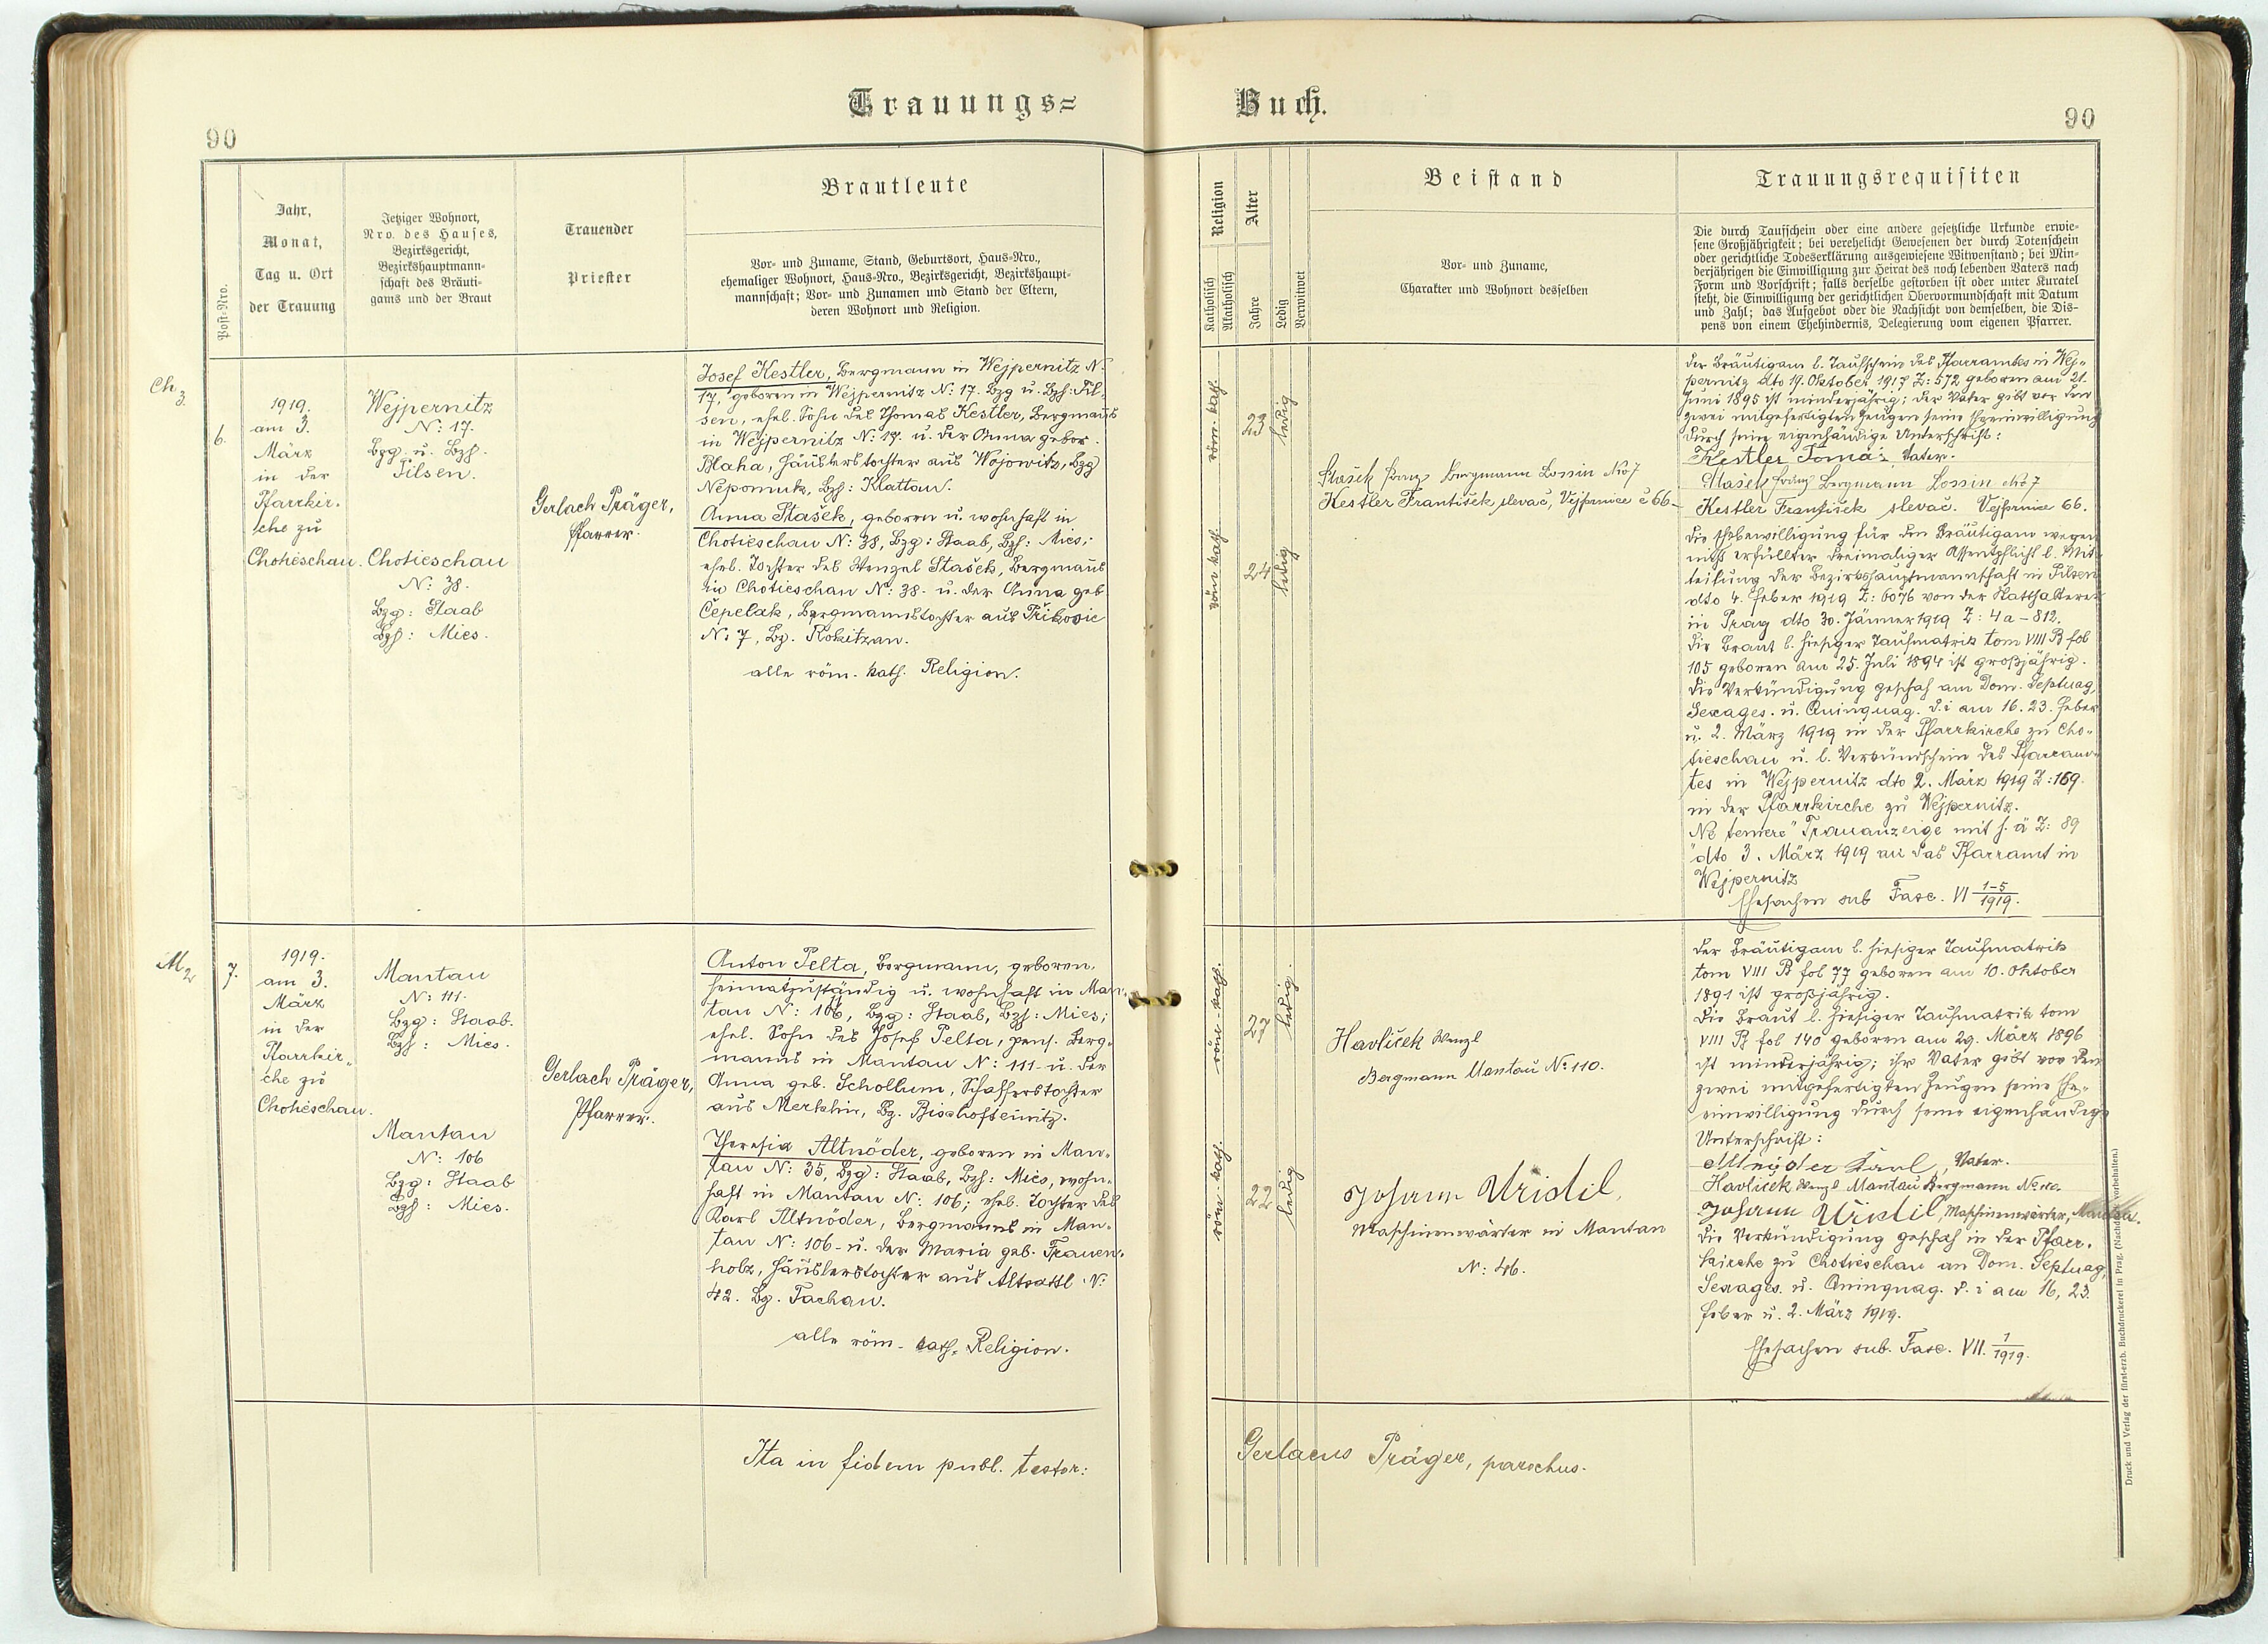 Trauungs=
Buch.
90
90
Post-Nro.
Jahr,
Monat,
Tag u. Ort
der Trauung
Jetziger Wohnort,
Nro. des Hauses,
Bezirksgericht,
Bezirkshauptmann-
schaft des Bräuti-
gams und der Braut
Trauender
Priester
Brautleute
Vor- und Zuname, Stand, Geburtsort, Haus-Nro.,
ehemaliger Wohnort, Haus-Nro., Bezirksgericht, Bezirkshaupt-
mannschaft; Vor- und Zunamen und Stand der Eltern,
deren Wohnort und Religion.
Religion
Katholisch
Akatholisch
Alter
Jahre
Ledig
Verwitwet
Beistand
Vor- und Zuname,
Charakter und Wohnort desselben
Trauungsrequisiten
Die durch Taufschein oder eine andere gesetzliche Urkunde erwie-
sene Großjährigkeit; bei verehelicht Gewesenen der durch Totenschein
oder gerichtliche Todeserklärung ausgewiesene Witwenstand; bei Min-
derjährigen die Einwilligung zur Heirat des noch lebenden Vaters nach
Form und Vorschrift; falls derselbe gestorben ist oder unter Kuratel
steht, die Einwilligung der gerichtlichen Obervormundschaft mit Datum
und Zahl; das Aufgebot oder die Nachsicht von demselben, die Dis-
pens von einem Ehehindernis, Delegierung vom eigenen Pfarrer.
Ch 3.
6.
1919.
am 3.
März
in der
Pfarrkir-
che zu
Chotieschau.
Wejpernitz
N: 17.
Bzg. u. Bzh.
Pilsen.
Chotieschau
N: 38.
Bzg: Staab
Bzh: Mies.
Gerlach Präger,
Pfarrer.
Josef Kestler, Bergmann in Wejpernitz N.
17, geboren in Wejpernitz N: 17. Bzg u. Bzh: Pil-
sen, ehel. Sohn des Thomas Kestler, Bergmanns
in Wejpernitz N: 17. u. der Anna gebor.
Blaha, Häuslerstochter aus Wojowitz, Bzg
Nepomuk, Bzh: Klattau.
Anna Stašek, geboren u. wohnhaft in
Chotieschau N: 38, Bzg: Staab, Bzh: Mies;
ehel. Tochter des Wenzel Stašek, Bergmanns
in Chotieschau N: 38. u. der Anna geb.
Čepelak, Bergmannstochter aus Přikosic
N: 7, Bz. Rokitzan.
alle röm. kath. Religion.
röm. kath.
23
ledig
röm kath.
24
ledig
Stašek Franz Bergmann Lossin No 7
Kestler František slevač, Vejprnice č 66
der Bräutigam l. Taufschein des Pfarramtes in Wej-
pernitz dto 19. Oktober 1917 Z: 572 geboren am 21.
Juni 1895 ist minderjährig; der Vater gibt vor den
zwei mitgefertigten Zeugen seine Eheeinwilligung
durch seine eigenhändige Unterschrift:
Kestler Tomáš, Vater.
Stašek Franz Bergmann Lossin No 7
Kestler František slevač. Vejprnice 66.
die Ehebewilligung für den Bräutigam wegen
nicht erfüllter dreimaliger Assentpflicht l. Mit-
teilung der Bezirkshauptmannschaft in Pilsen
dto 4. Feber 1919 Z: 6076 von der Statthalterei
in Prag dto 30. Jänner 1919 Z: 4a-812.
die Braut l. hiesiger Taufmatrik tom VIII B fol
105 geboren am 25. Juli 1894 ist großjährig.
die Verkündigung geschah am Dom. Septuag,
Sexages. u. Quinquag. d. i am 16. 23. Feber
u. 2. März 1919 in der Pfarrkirche zu Cho-
tieschau u. l. Verkündschein des Pfarram-
tes in Wejpernitz dto 2. März 1919 Z: 169.
in der Pfarrkirche zu Wejpernitz.
"Ne temere" Trauanzeige mit h. ä Z: 89
dto 3. März 1919 an das Pfarramt in
Wejpernitz
Ehesachen sub Fasc. VI 1-5/1919.
M 2
7.
1919.
am 3.
März
in der
Pfarrkir-
che zu
Chotieschau.
Mantau
N: 111.
Bzg: Staab.
Bzh: Mies.
Mantau
N: 106
Bzg: Staab
Bzh: Mies.
Gerlach Präger,
Pfarrer.
Anton Pelta, Bergmann, geboren,
heimatzuständig u. wohnhaft in Man-
tau N: 106, Bzg: Staab, Bzh: Mies;
ehel. Sohn des Josef Pelta, pens. Berg-
manns in Mantau N: 111 u. der
Anna geb. Schollum, Schafferstochter
aus Merklin, Bz. Bischofteinitz.
Theresia Altnöder, geboren in Man-
tau N: 35, Bzg: Staab, Bzh: Mies, wohn-
haft in Mantau N: 106; ehel. Tochter des
Karl Altnöder, Bergmanns in Man-
tau N: 106 u. der Maria geb. Frauen-
holz, Häuslerstochter aus Altsattl N:
42. Bz. Tachau.
alle röm. kath. Religion.
röm. kath.
27
ledig.
röm. kath.
22
ledig
Havlicek Wenzl
Bergmann Mantau No 110.
Johann Uridil,
Maschinenwärter in Mantau
N: 46.
der Bräutigam l. hiesiger Taufmatrik
tom VIII B fol 77 geboren am 10. Oktober
1891 ist großjährig.
die Braut l. hiesiger Taufmatrik tom
VIII B fol 140 geboren am 29. März 1896
ist minderjährig; ihr Vater gibt vor den
zwei mitgefertigten Zeugen seine Ehe-
einwilligung durch seine eigenhändige
Unterschrift:
Altnöder Karl, Vater.
Havlicek Wenzl Mantau Bergmann No 110.
Johann Uridil, Maschinenwärter, Mantau.
die Verkündigung geschah in der Pfarr-
kirche zu Chotieschau an Dom. Septuag,
Sexages. u. Quinquag. d. i am 16, 23.
Feber u. 2. März 1919.
Ehesachen sub. Fasc. VII. 1/1919.
Ita in fidem publ. testor:
Gerlacus Präger, parochus.
Druck und Verlag der fürst-erzb. Buchdruckerei in Prag. (Nachdruck vorbehalten.)